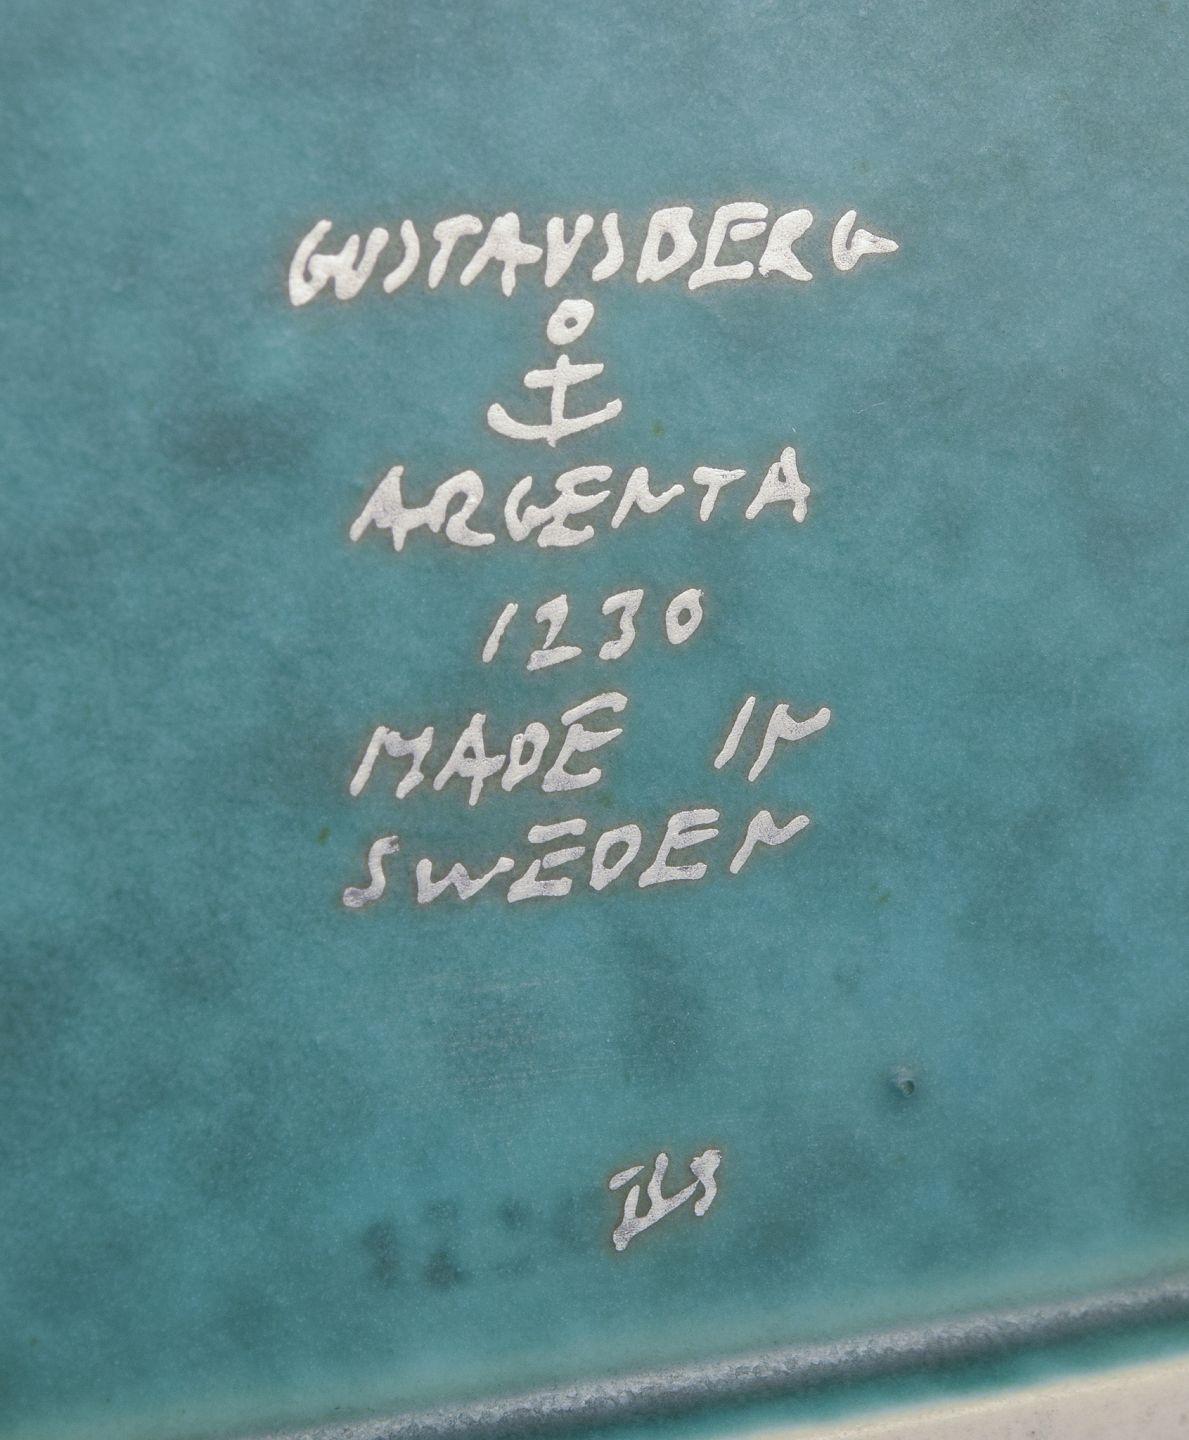 GUSTAVSBERG
ARGENTA
1230
MADE IN
SWEDEN